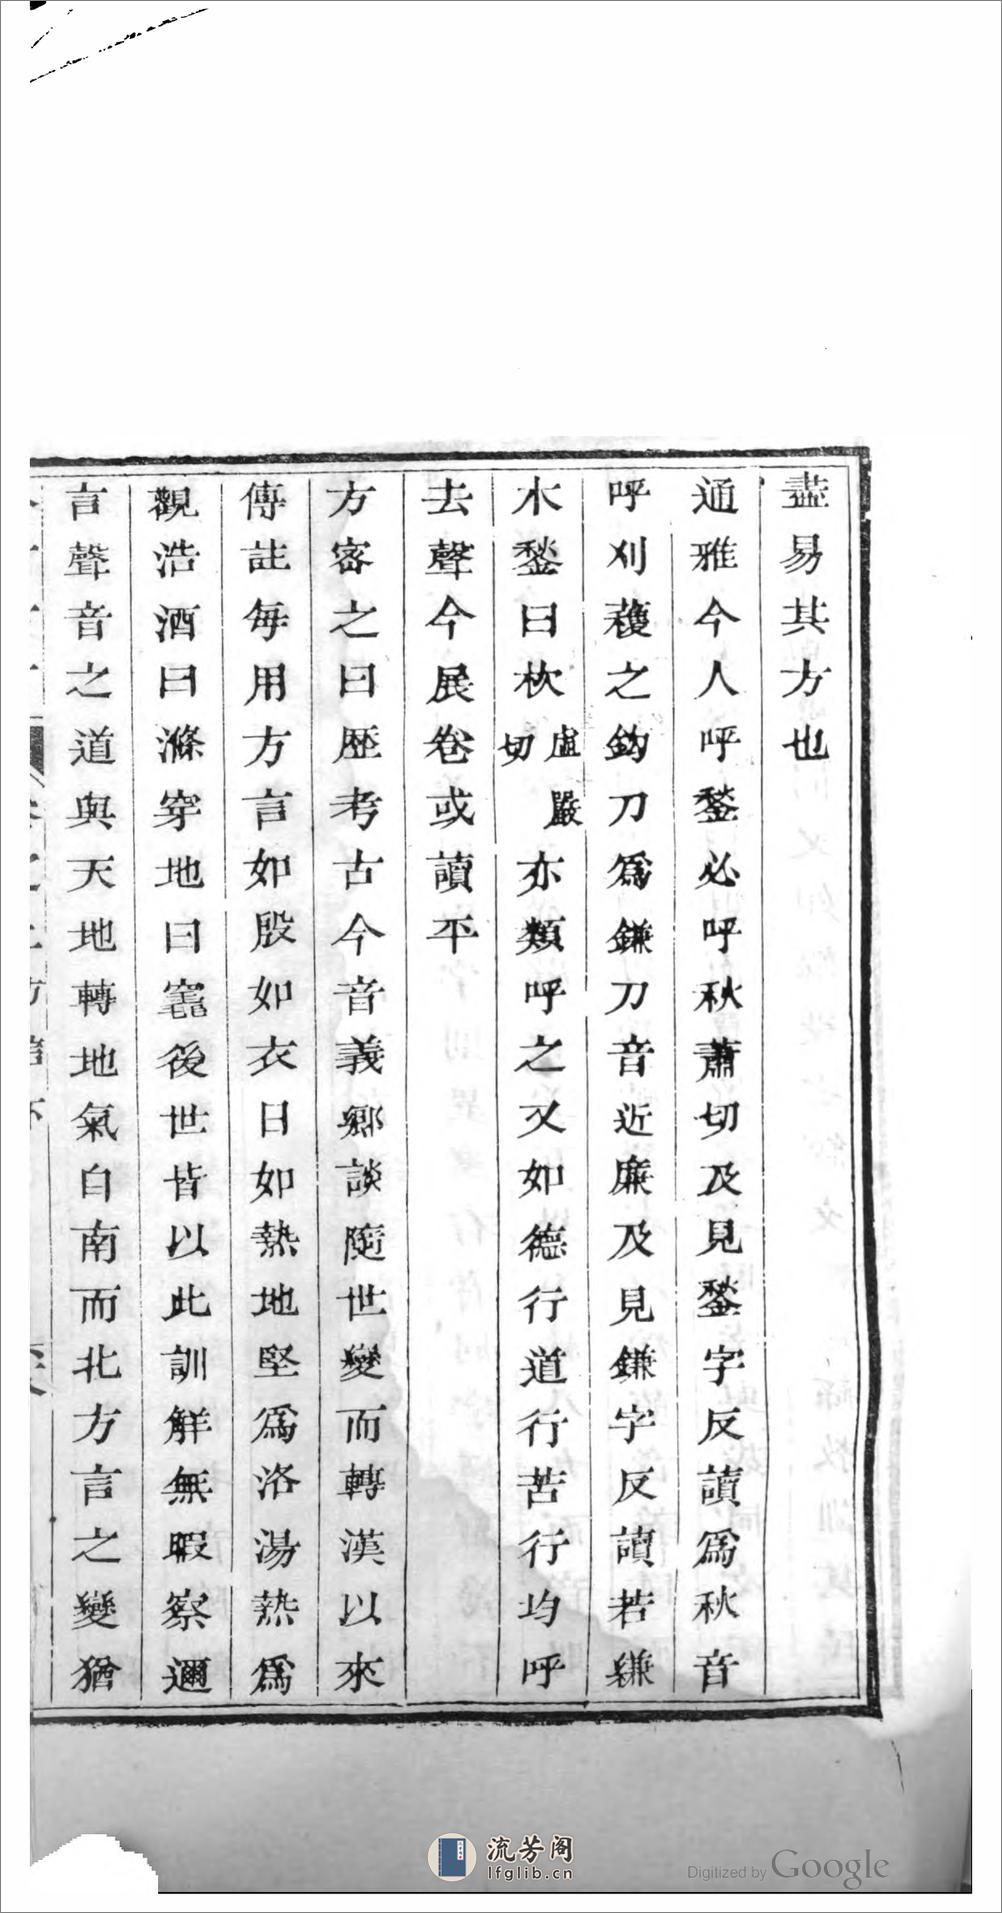 盡易其方也
通雅今人呼鍫必呼秋蕭切及見鍫字反讀爲秋音
呼刈穫之鈎刀爲鎌刀音近廉及見鎌字反讀若縑
木鍫曰杴盧嚴切亦類呼之又如德行道行苦行均呼
去聲今展卷或讀平
方密之曰歴考古今音義鄉談隨世變而轉漢以來
傳註每用方言如殷如衣日如熱地堅爲洛湯熱爲
觀浩酒曰滌穿地曰竁後世皆以此訓解無暇察邇
言聲音之道與天地轉地氣自南而北方言之變猶
流芳阁
lfglib.cn
Digitized by Google